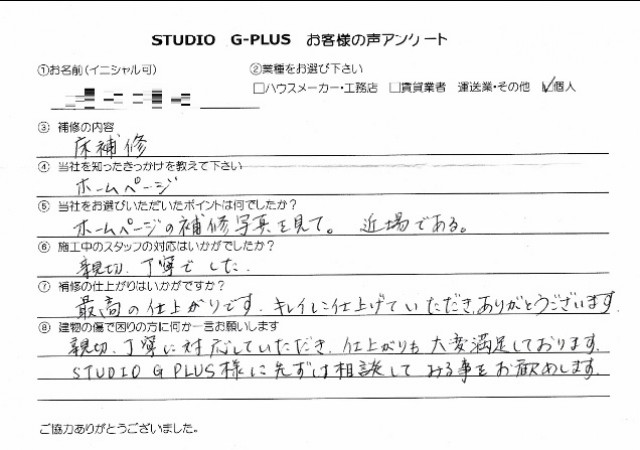 STUDIO G-PLUS お客様の声アンケート
①お名前(イニシャル可) ②業種をお選び下さい
□ハウスメーカー・工務店 □賃貸業者 運送業・その他 ☑個人
③ 補修の内容
床補修
④ 当社を知ったきっかけを教えて下さい
ホームページ
⑤ 当社をお選びいただいたポイントは何でしたか？
ホームページの補修写真を見て。 近場である。
⑥ 施工中のスタッフの対応はいかがでしたか？
親切、丁寧でした。
⑦ 補修の仕上がりはいかがですか？
最高の仕上がりです。キレイに仕上げていただき、ありがとうございます。
⑧ 建物の傷で困りの方に何か一言お願いします
親切、丁寧に対応していただき、仕上がりも大変満足しております。
STUDIO G PLUS様に先ずは相談してみる事をお勧めします。
ご協力ありがとうございました。